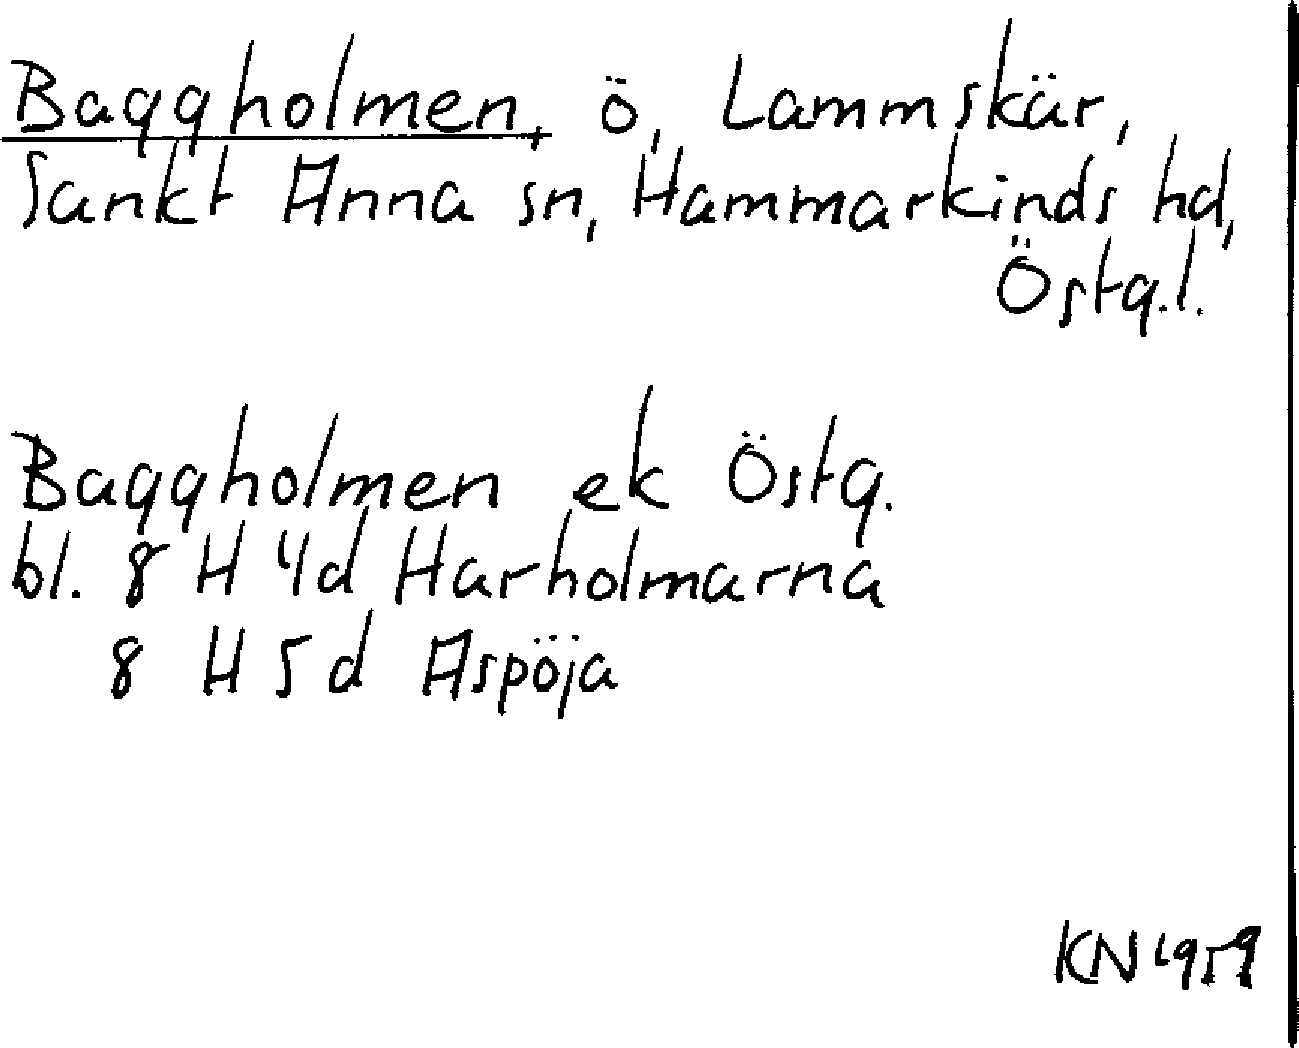 Baggholmen, ö, Lammskär,
Sankt Anna sn, Hammarkinds hd,
Östg.l.
Baggholmen ek Östg.
bl. 8 H 4d Harholmarna
8 H 5d Aspöja
KN 1959